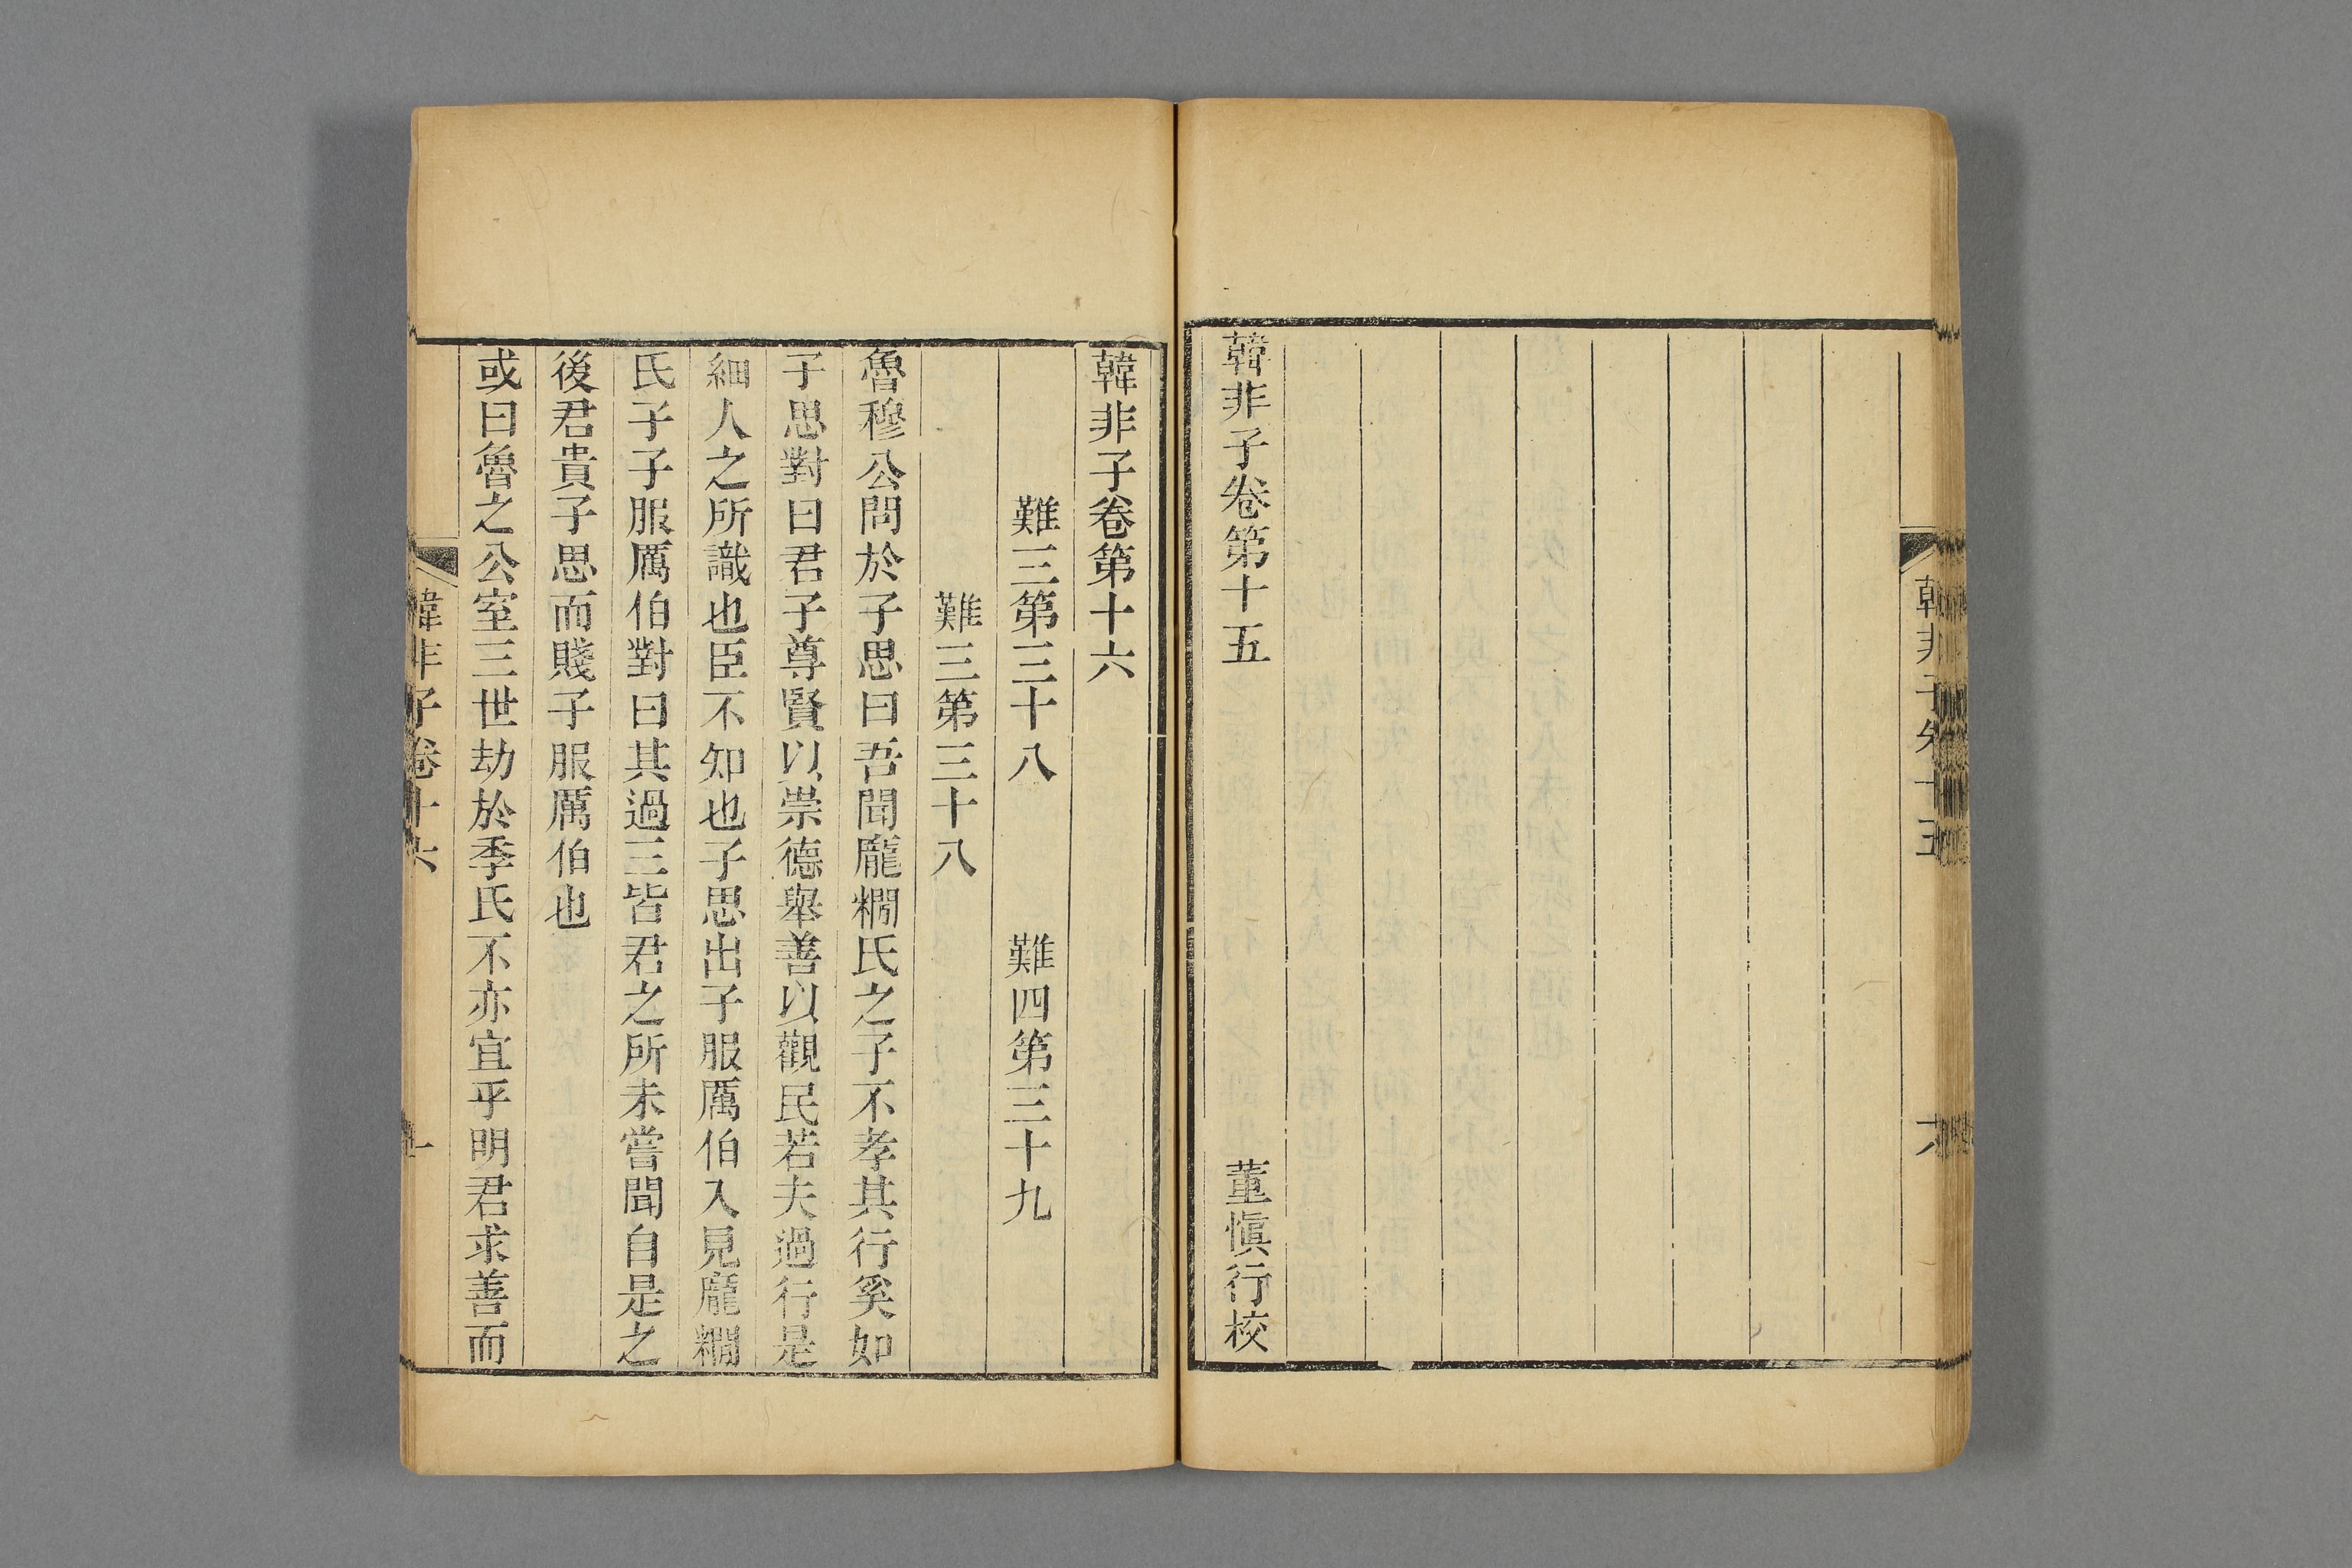 韓非子卷十五
六
韓非子卷第十五　董愼行校
韓非子卷第十六
難三第三十八　難四第三十九
難三第三十八
魯穆公問於子思曰吾聞龐𥻳氏之子不孝其行奚如
子思對曰君子尊賢以崇德舉善以觀民若夫過行是
細人之所識也臣不知也子思出子服厲伯入見龐𥻳
氏子子服厲伯對曰其過三皆君之所未嘗聞自是之
後君貴子思而賤子服厲伯也
或曰魯之公室三世劫於季氏不亦宜乎明君求善而
韓非子卷十六
一